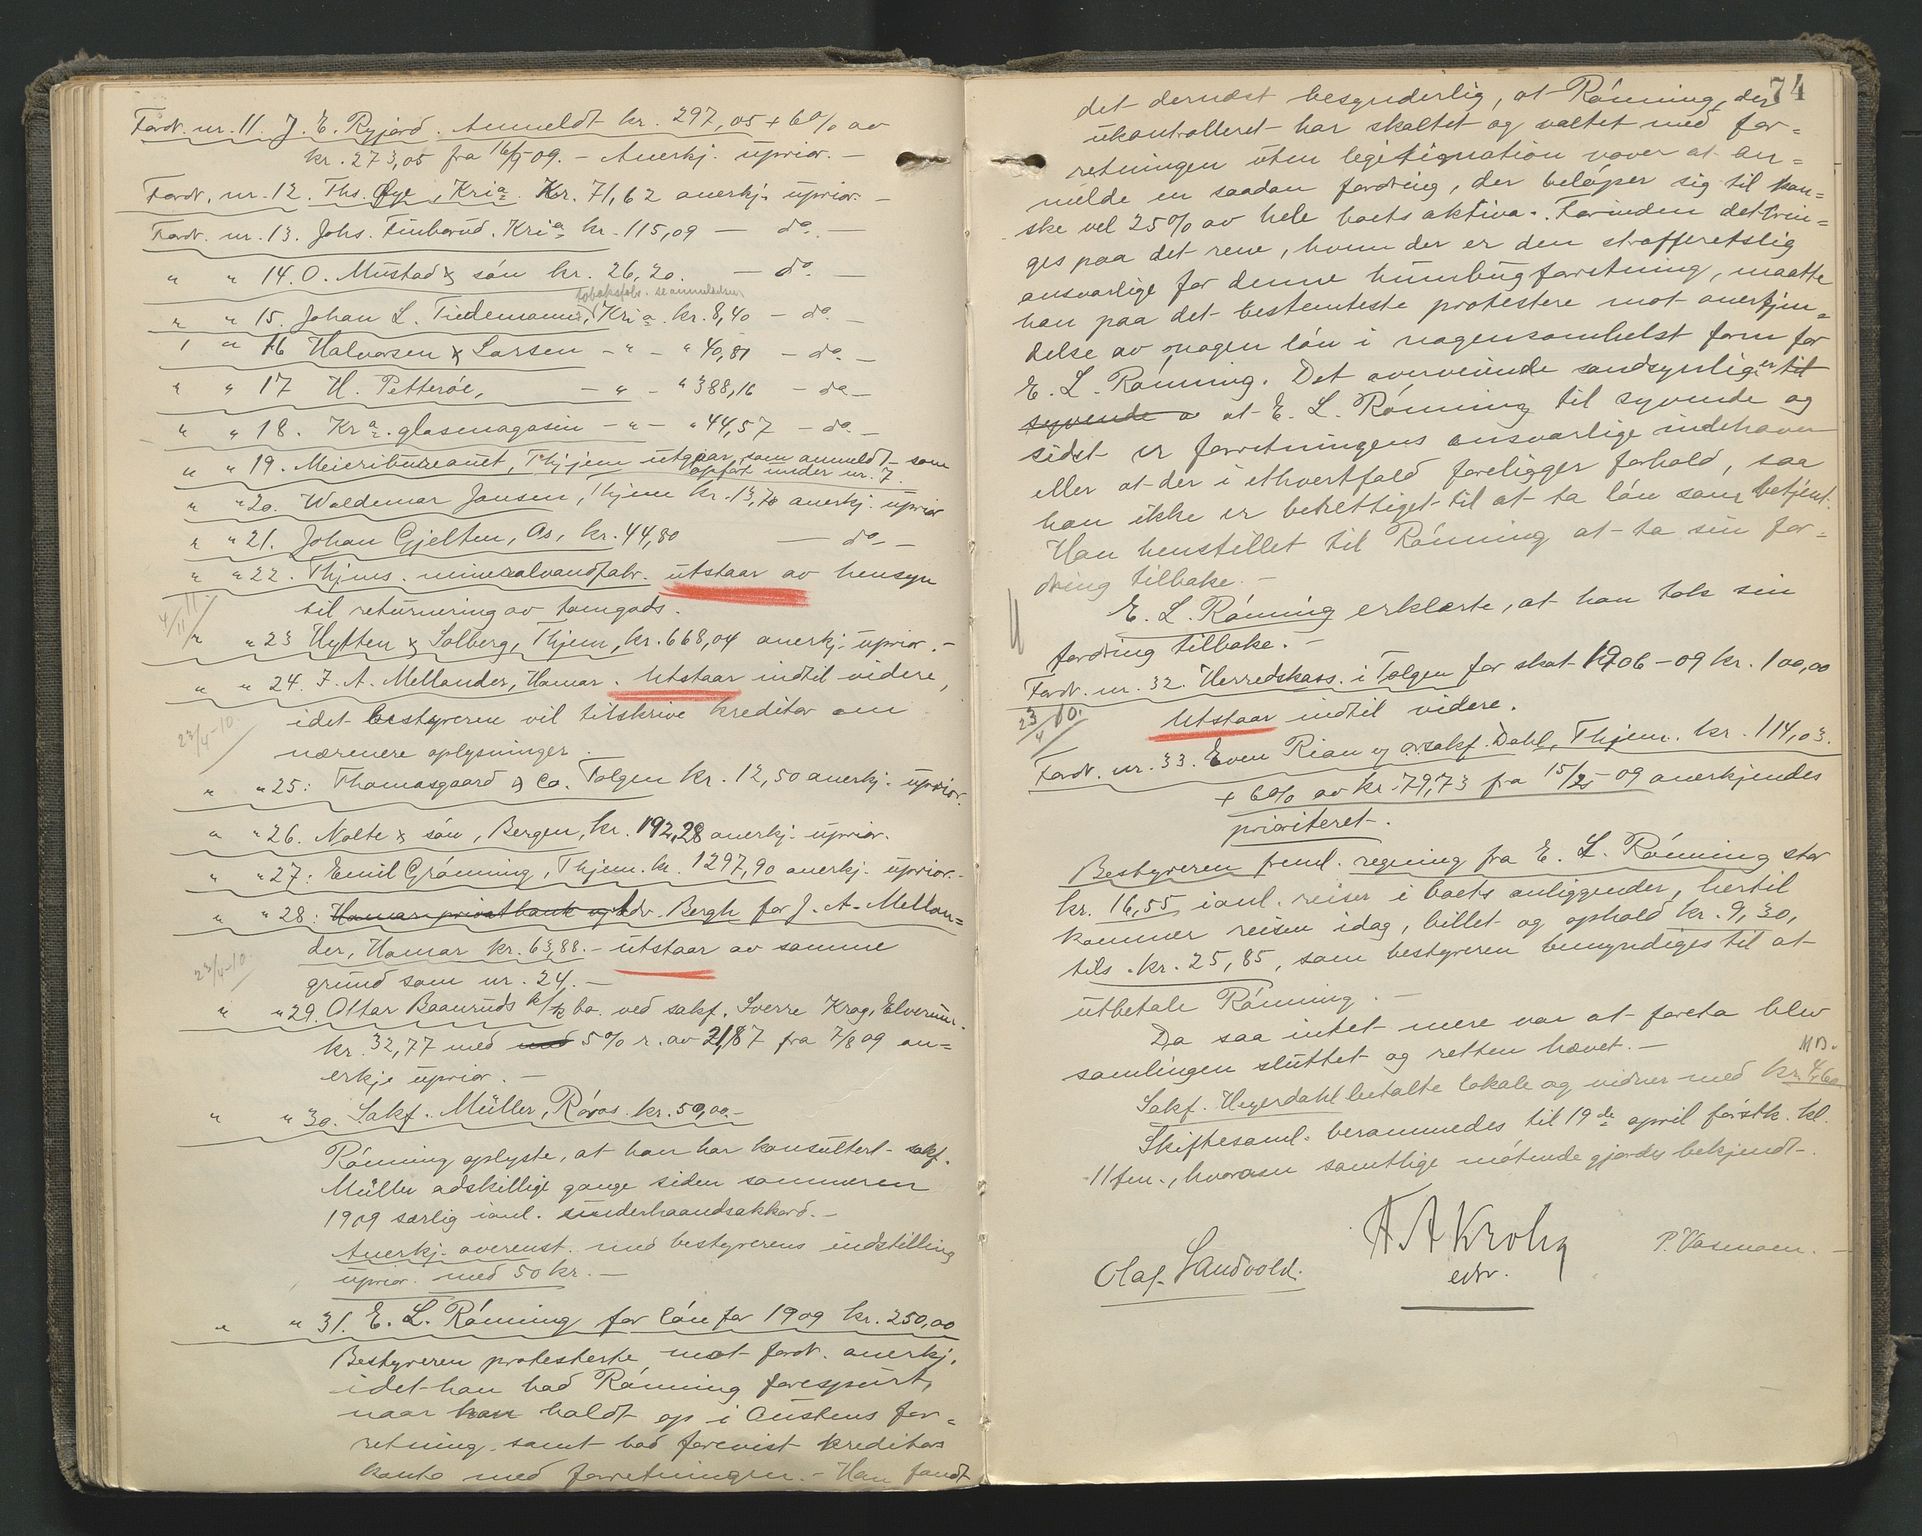 Fordr. nr. 11. J. E. Ryjord. Anmeldt kr. 297,05 + 6% av
kr. 273,05 fra 16/9 09. – Anerkj. uprior. –
Fordr. nr. 12. Ths. Øye, Kria. Kr. 71,62 anerkj. uprior. –
Fordr. nr. 13. Johs. Finborud. Kria kr. 115,09 – do. –
" " 14. O. Mustad & søn kr. 26,20. – do. –
tobaksfabr. se anmeldelsen
" " 15. Johan L. Tiedemanns, Kria. kr. 8,40 – do. –
" " 16 Halvorsen & Larsen – " – " 40,81 – do. –
" " 17 H. Petterøe, – " – " 388,16 – do –
" " 18. Kra. glasmagasin – " – " 44,57 – do. –
" " 19. Meieribureauet, Thjem utgaar, som anmeldt som
opført under nr. 7.
" " 20. Waldemar Jansen, Thjem kr. 13,70 anerkj. uprior
" " 21. Johan Gjelten, Os, kr. 44,80 – do. –
" " 22. Thjems. mineralvandfabr. utstaar av hensyn
til returnering av tomgods.
4/11
" " 23 Hyften & Solberg, Thjem, kr. 668,04 anerkj. uprior. –
" " 24. J. A. Mellander, Hamar. Utstaar indtil videre,
idet bestyreren vil tilskrive kreditor om
23/4-10.
nærmere oplysninger.
" " 25: Thomasgaard & Co. Tolgen kr. 12,50 anerkj. uprior.
" " 26. Nolte & søn, Bergen, kr. 192,28 anerkj. uprior.
" " 27: Emil Grønning, Thjem. kr. 1297,90 anerkj. uprior. –
" " 28: Hamar privatbank og Adv. Bergh for J. A. Mellan=
der, Hamar kr. 63,88. – utstaar av samme
23/4-10.
grund som nr. 24. –
" " 29. Ottar Baanruds k/k bo. ved sakf. Sverre Krag, Elverum.
kr. 32,77 med med 5% r. av 21,87 fra 7/8 09 an=
erkje uprior. –
" " 30. Sakf. Müller, Røros. kr. 50,00. –
Rønning oplyste, at han har konsultert sakf.
Müller adskillige gange siden sommeren
1909 særlig ianl. underhaandsakkord. –
Anerkj. overenst. med bestyrerens indstilling
uprior. med 50 kr. –
" " 31. E. L. Rønning for løn for 1909 kr. 250,00
Bestyreren protesterte mot fordr. anerkj.
idet han had Rønning forespurt,
naar han holdt op i Austens for=
retning samt had forevist kreditors
konto med forretningen. – Han fandt
74
det dernæst besynderlig, at Rønning, der
ukontrolleret har skaltet og valtet med for=
retningen uten legitimation vover at an=
melde en saadan fordring, der beløper sig til kan=
ske vel 25% av hele boets aktiva. Forinden det brin=
ges paa det rene, hvem der er den strafferetslig
ansvarlige for denne humbugforretning, maatte
han paa det bestemteste protestere mot anerkjen=
delse av nogen løn i nogensomhelst form for
E. L. Rønning. Det overveiende sandsynlig er til
syvende o at E. L. Rønning til syvende og
sidst er forretningens ansvarlige indehaver
eller at der i ethvertfald foreligger forhold, saa
han ikke er berettiget til at ta løn som betjent.
Han henstillet til Rønning at ta sin for=
dring tilbake. –
E. L. Rønning erklærte, at han tok sin
fordring tilbake. –
Fordr. nr. 32. Herredskass. i Tolgen for skat 1906–09 kr. 100,00
23/4 10.
Utstaar indtil videre.
Fordr. nr. 33. Even Rian v/ o.r.sakf. Dahl, Thjem. kr. 114,03.
+ 6% av kr. 79,73 fra 15/2 09 anerkjendes
prioriteret.
Bestyreren freml. regning fra E. L. Rønning stor
kr. 16,55 ianl. reiser i boets anliggender, hertil
kommer reisen idag, billet og ophold kr. 9,30,
tils. kr. 25,85, som bestyreren bemyndiges til at
utbetale Rønning. –
Da saa intet mere var at foreta blev
samlingen sluttet og retten hævet. –
Sakf. Heyerdahl betalte lokale og vidner med kr. 4,60
Skiftesaml. berammedes til 19de april førstk. kl.
11 fm., hvorom samtlige møtende gjordes bekjendt. –
A A Krohg
edv.
Olaf Sandvold.
P. Vasmoen. –